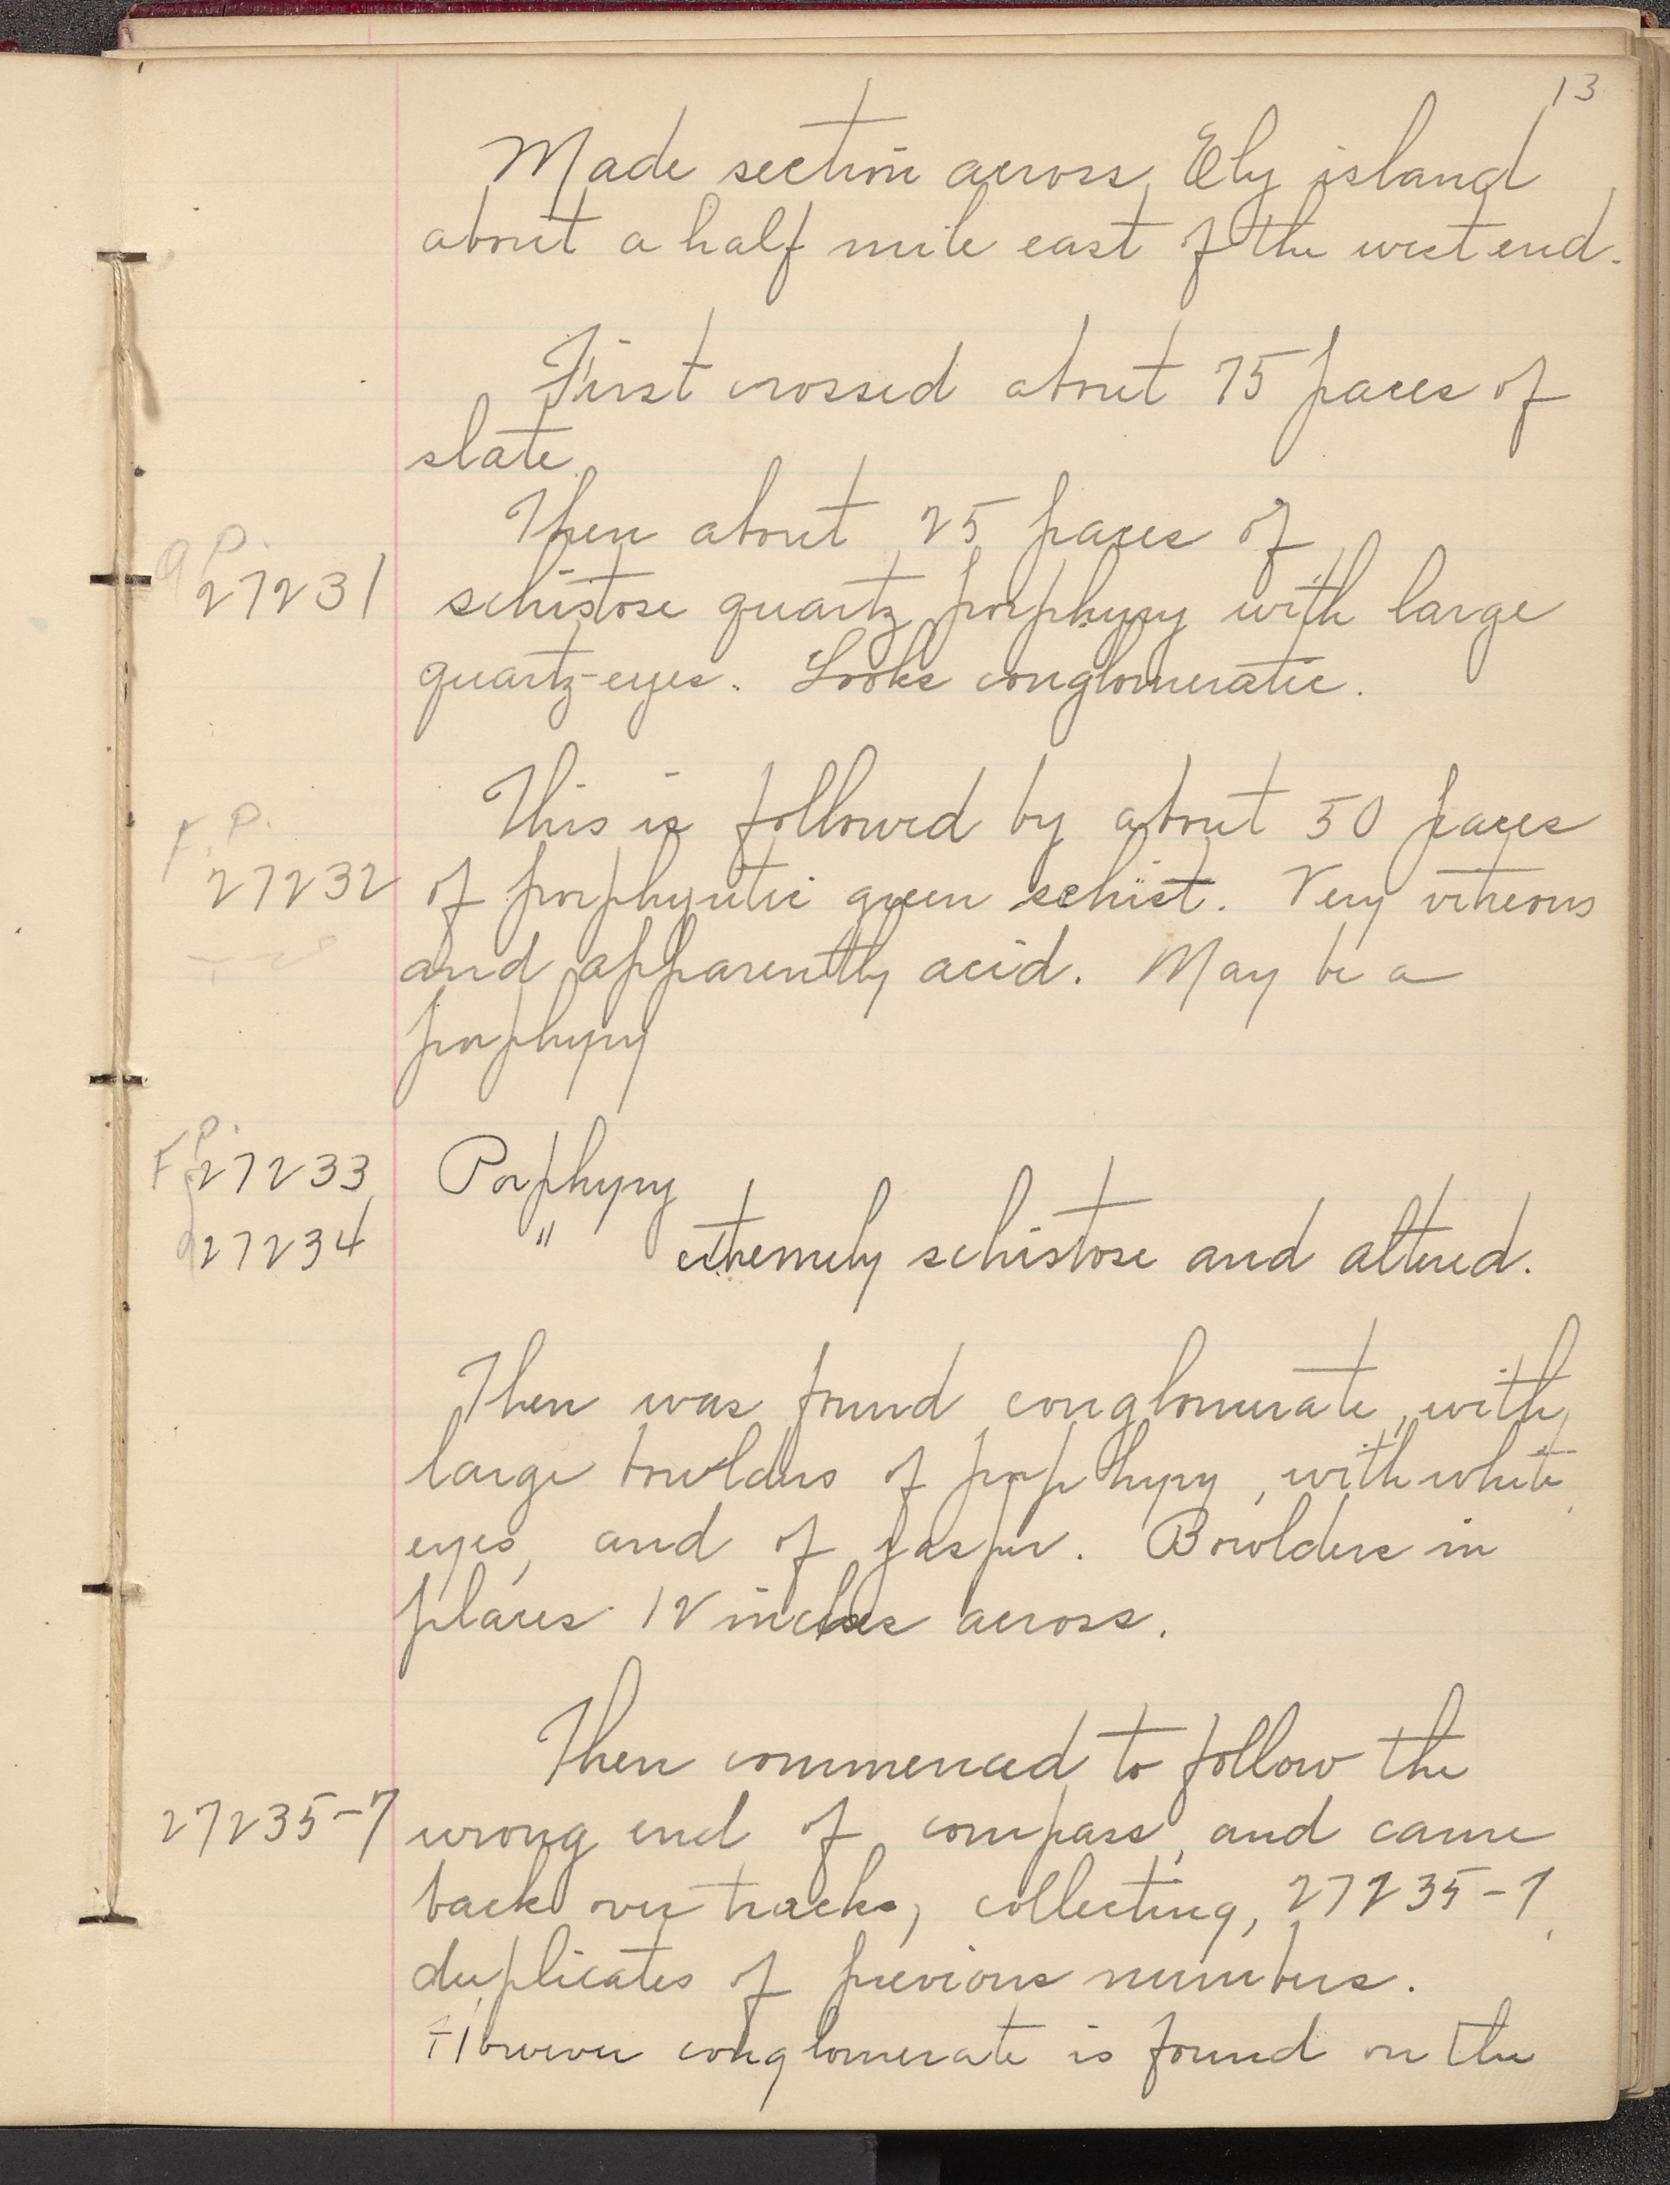 13
Made section across Ely island
about a half mile east of the west end.
First crossed about 75 paces of
slate.
Then about 25 paces of
Q P.
27231 schistose quartz porphyry with large
quartz-eyes. Looks conglomeratic.
This is followed by about 50 paces
F. P.
27232 of porphyritic green schist. Very vitreous
and apparently acid. May be a
porphyry
F P.
27233 Porphyry
27234 " extremely schistose and altered.
Then was found conglomerate, with
large bowlders of porphyry, with white
eyes, and of jasper. Bowlders in
places 12 inches across.
Then commenced to follow the
27235-7 wrong end of compass, and came
back over tracks, collecting, 27235-7,
duplicates of previous numbers.
However conglomerate is found on the